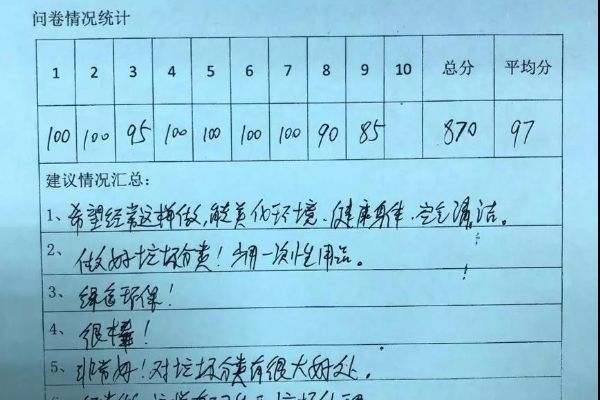 问卷情况统计
1 2 3 4 5 6 7 8 9 10 总分 平均分
100 100 95 100 100 100 100 90 85 870 97
建议情况汇总：
1、希望经常这样做，能美化环境、健康身体、空气清洁。
2、做好垃圾分类！少用一次性用品。
3、绿色环保！
4、很棒！
5、非常好！对垃圾分类有很大好处。